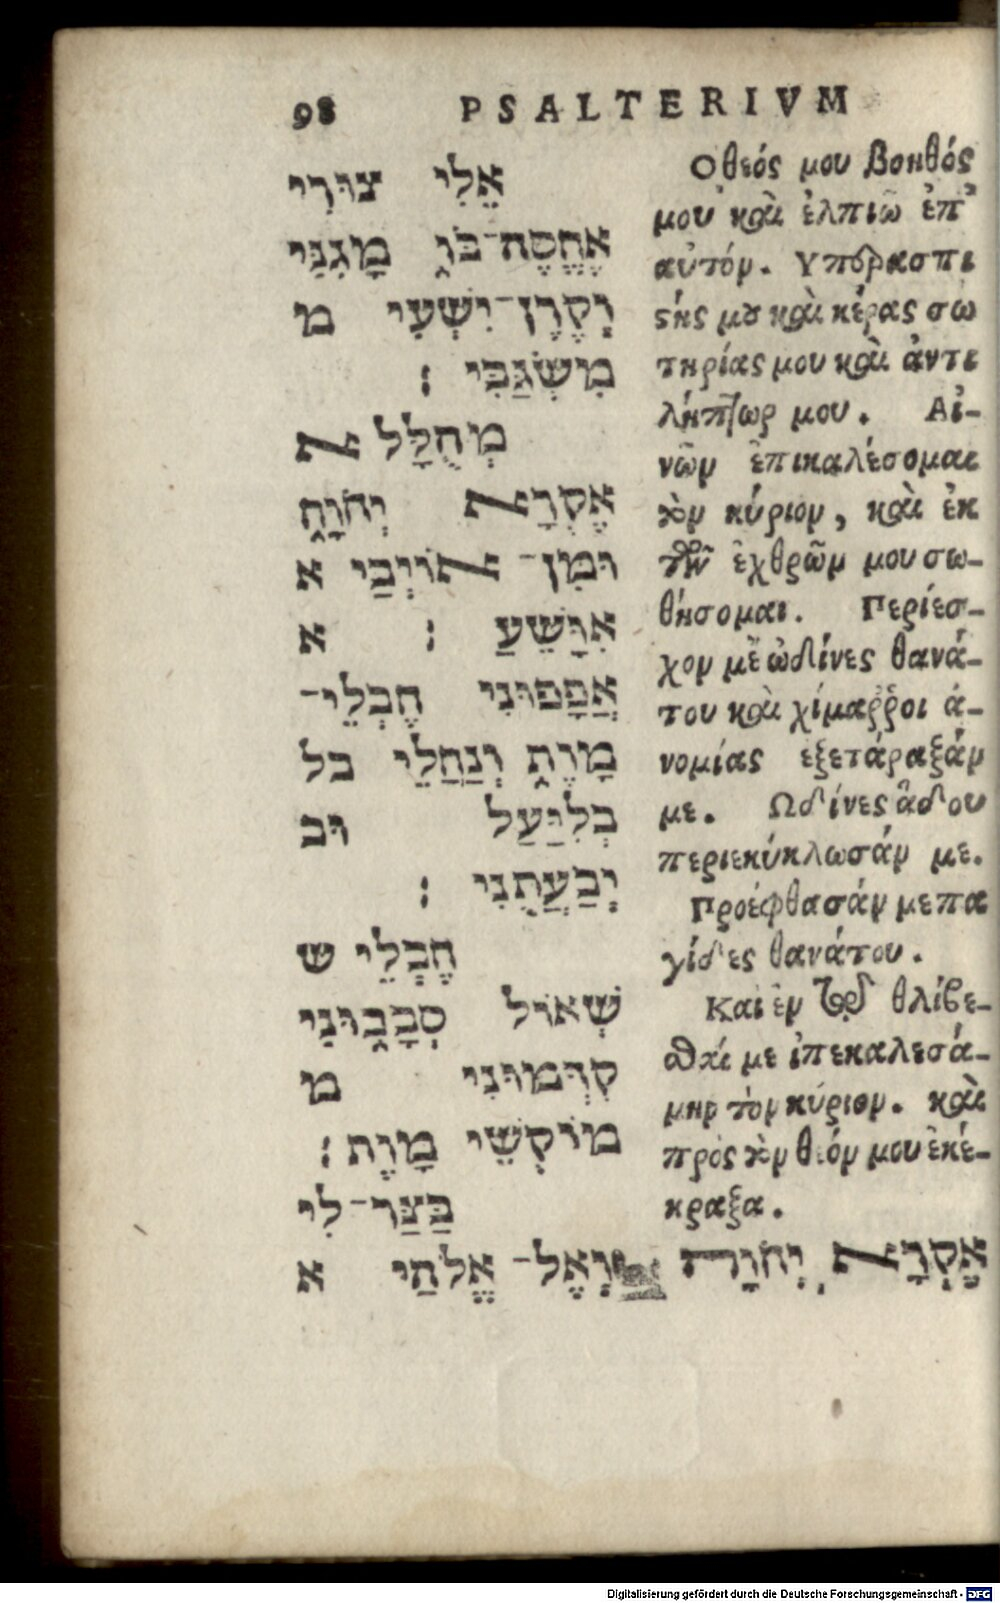 98 PSALTERIVM
אֵלִי צוּרִי
אֶחֱסֶה־בּוֹ מָגִנִּי
וְקֶרֶן־יִשְׁעִי מ
מִשְׂגַּבִּי׃
מְחֻלָּל א
אֶקְרָא יְהוָה
וּמִן־אוֹיְבַי א
אִוָּשֵׁעַ׃ א
אֲפָפוּנִי חֶבְלֵי־
מָוֶת וְנַחֲלֵי בל
בְלִיַּעַל וב
יְבַעֲתֻנִי׃
חֶבְלֵי ש
שְׁאוֹל סְבָבוּנִי
קִדְּמוּנִי מ
מוֹקְשֵׁי מָוֶת׃
בַּצַּר־לִי
אֶקְרָא יְהוָה וְאֶל־אֱלֹהַי א
Ο θεός μου βοηθός
μου καὶ ἐλπιῶ ἐπ'
αὐτόν. Υπερασπι
στής μου καὶ κέρας σω
τηρίας μου καὶ ἀντι
λήπτωρ μου. Αἰ-
νῶν ἐπικαλέσομαι
τὸν κύριον, καὶ ἐκ
τῶν ἐχθρῶν μου σω-
θήσομαι. Περίεσ-
χον μὲ ὠδίνες θανά-
του καὶ χίμαῤῥοι ἀ-
νομίας εξετάραξάν
με. Ωδίνες ἅδου
περιεκύκλωσάν με.
Προέφθασάν με πα
γίδες θανάτου.
Καὶ ἐν τῷ θλίβε-
σθαί με ἐπεκαλεσά-
μην τὸν κύριον. καὶ
πρὸς τὸν θεόν μου ἐκέ-
κραξα.
Digitalisierung gefördert durch die Deutsche Forschungsgemeinschaft - DFG